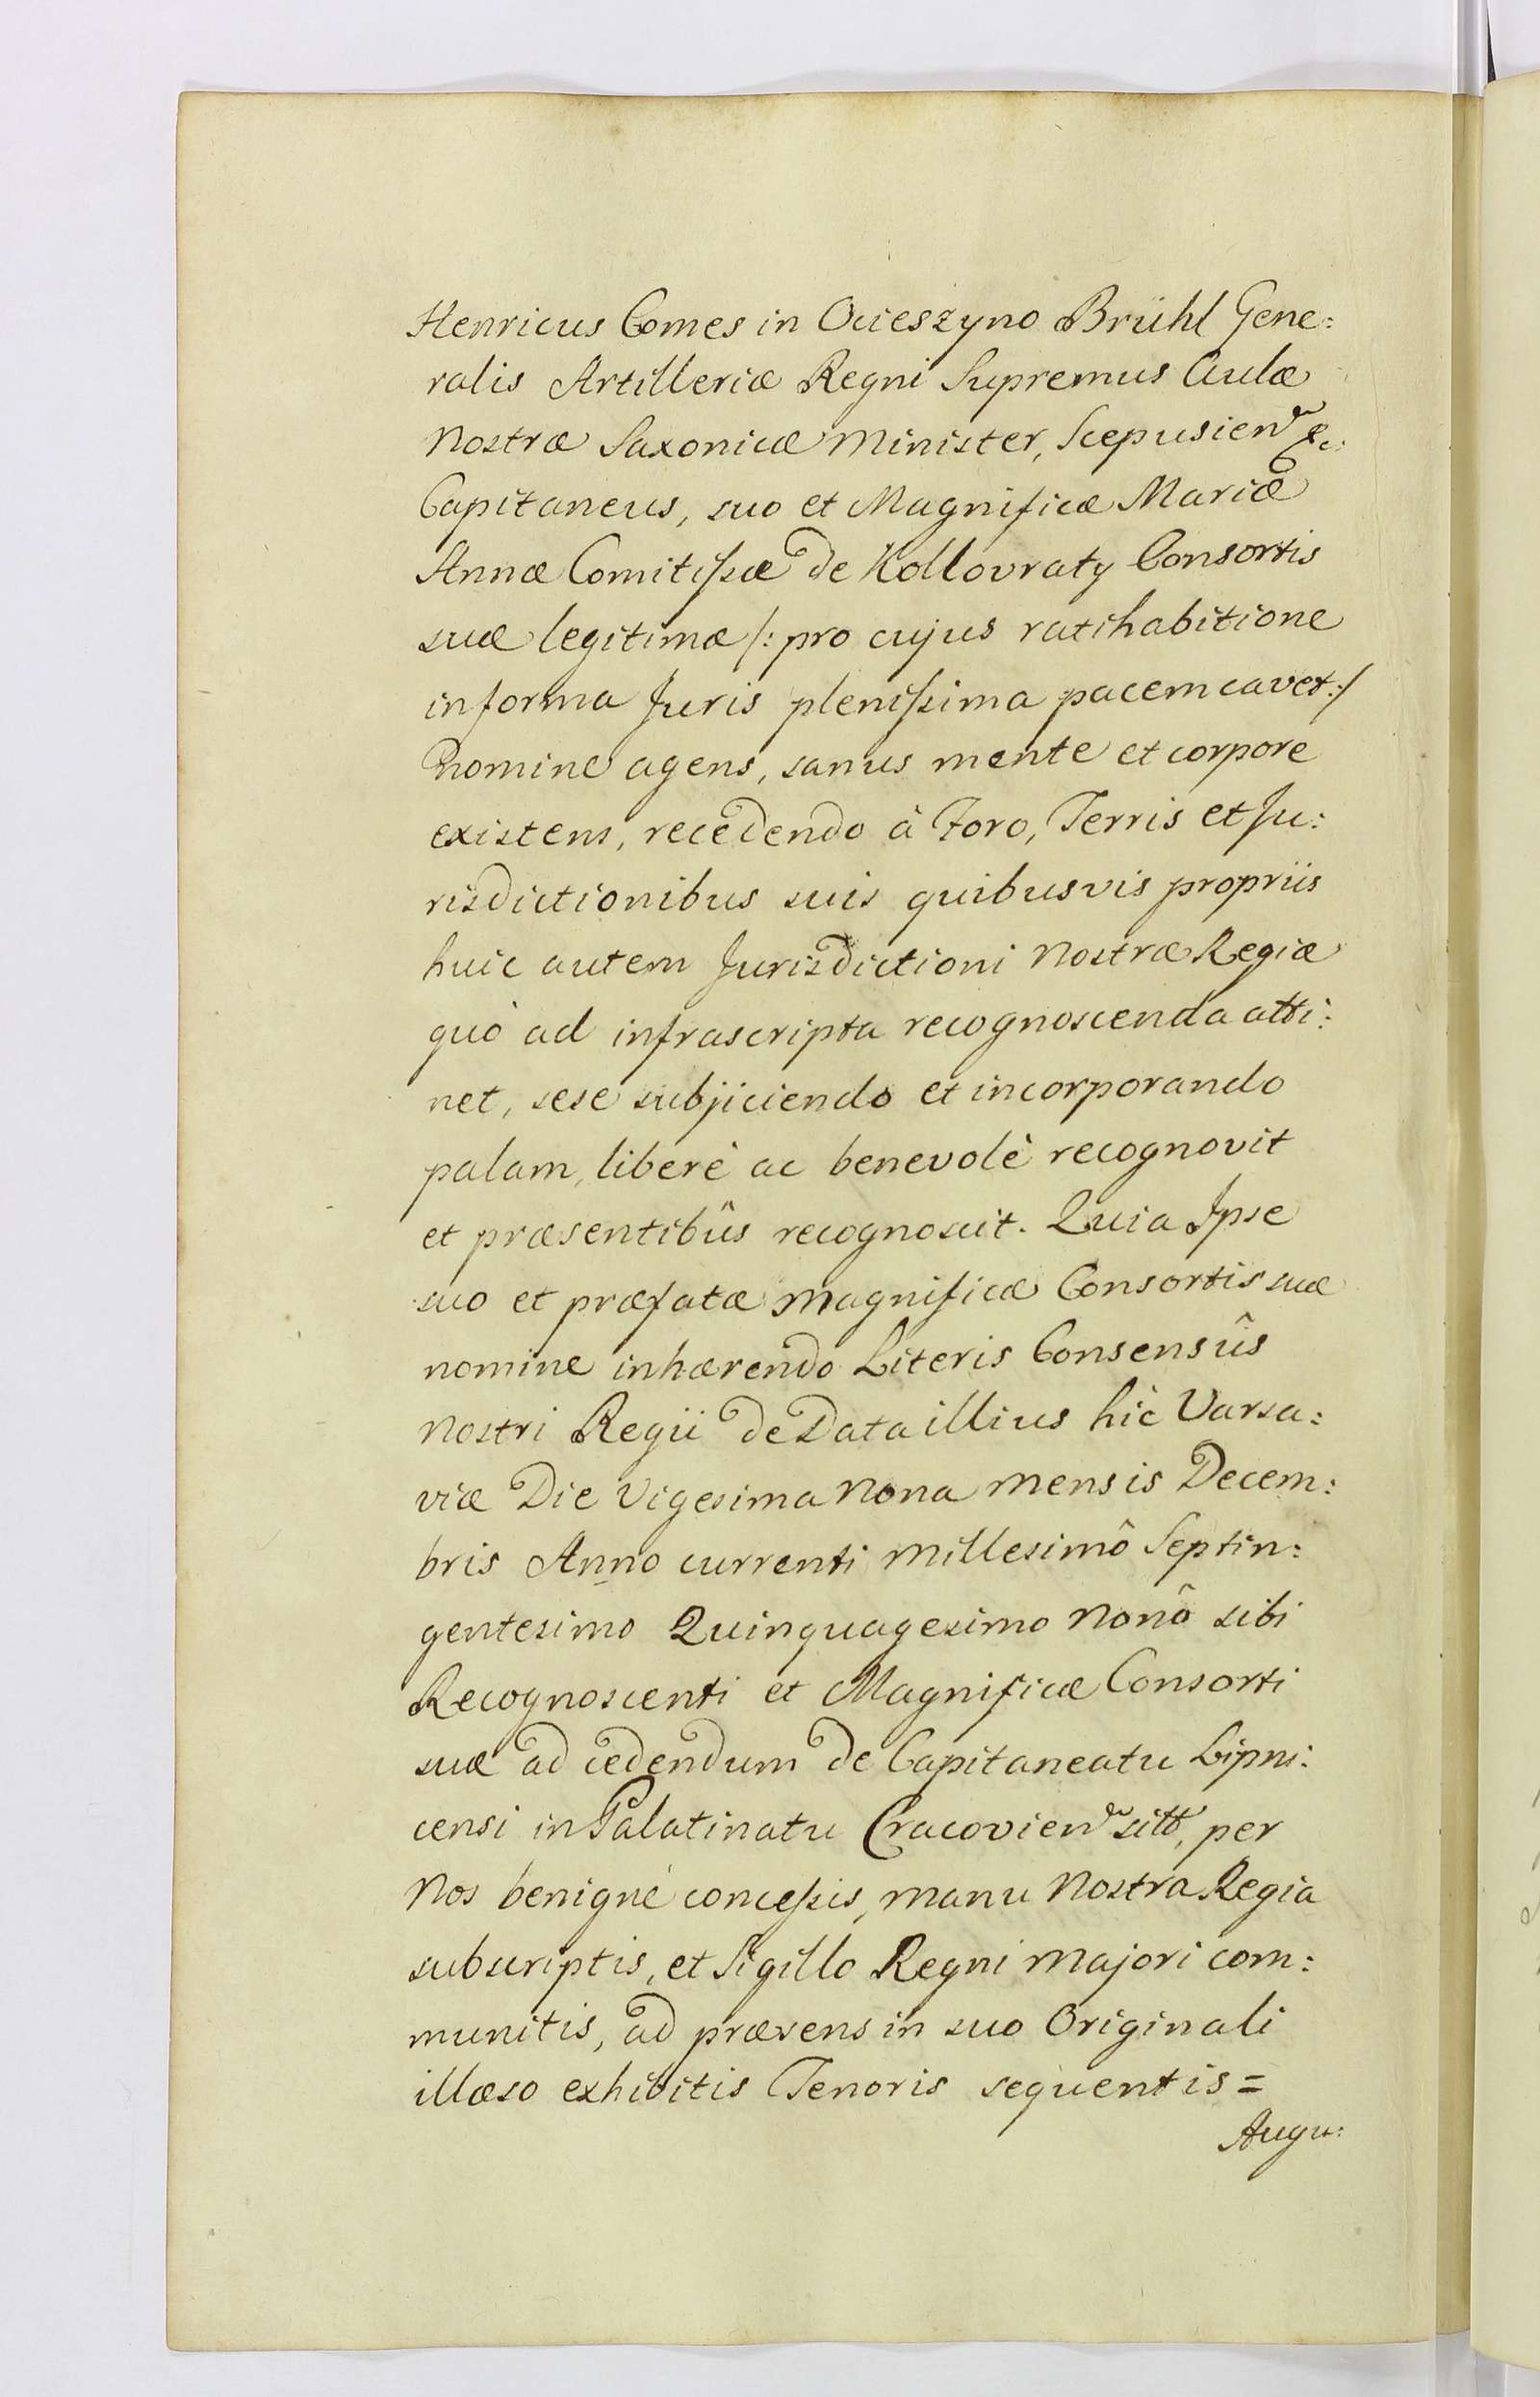 Henricus Comes in Ocieszyno Brühl Gene:
ralis Artilleriæ Regni Supremus Aulæ
Nostræ Saxonicæ Minister, Scepusien &c:
Capitaneus, suo et Magnificæ Mariæ
Annæ Comitißæ de Kollovraty Consortis
suæ legitimæ /: pro cujus ratihabitione
in forma Juris plenißima pacem cavet :/
nomine agens, sanus mente et corpore
existens, recedendo à Foro, Terris et Ju:
risdictionibus suis quibusvis propriis
huic autem Jurisdictioni Nostræ Regiæ
quò ad infrascripta recognoscenda atti:
net, sese subjiciendo et incorporando
palam, liberè ac benevolè recognovit
et præsentibûs recognoscit. Quia Ipse
suo et præfatæ Magnificæ Consortis suæ
nomine inhærendo Literis Consensûs
Nostri Regii de Data illius hìc Varsa:
viæ Die Vigesima Nona Mensis Decem:
bris Anno currenti Millesimô Septin:
gentesimo Quinquagesimo Nonô sibi
Recognoscenti et Magnificæ Consorti
suæ ad cedendum de Capitaneatu Lipni:
censi in Palatinatu Cracovien sitt, per
Nos benignè conceßis, manu Nostra Regia
subscriptis, et Sigillo Regni Majori com:
munitis, ad præsens in suo Originali
illæso exhibitis Tenoris sequentis =
Augu: